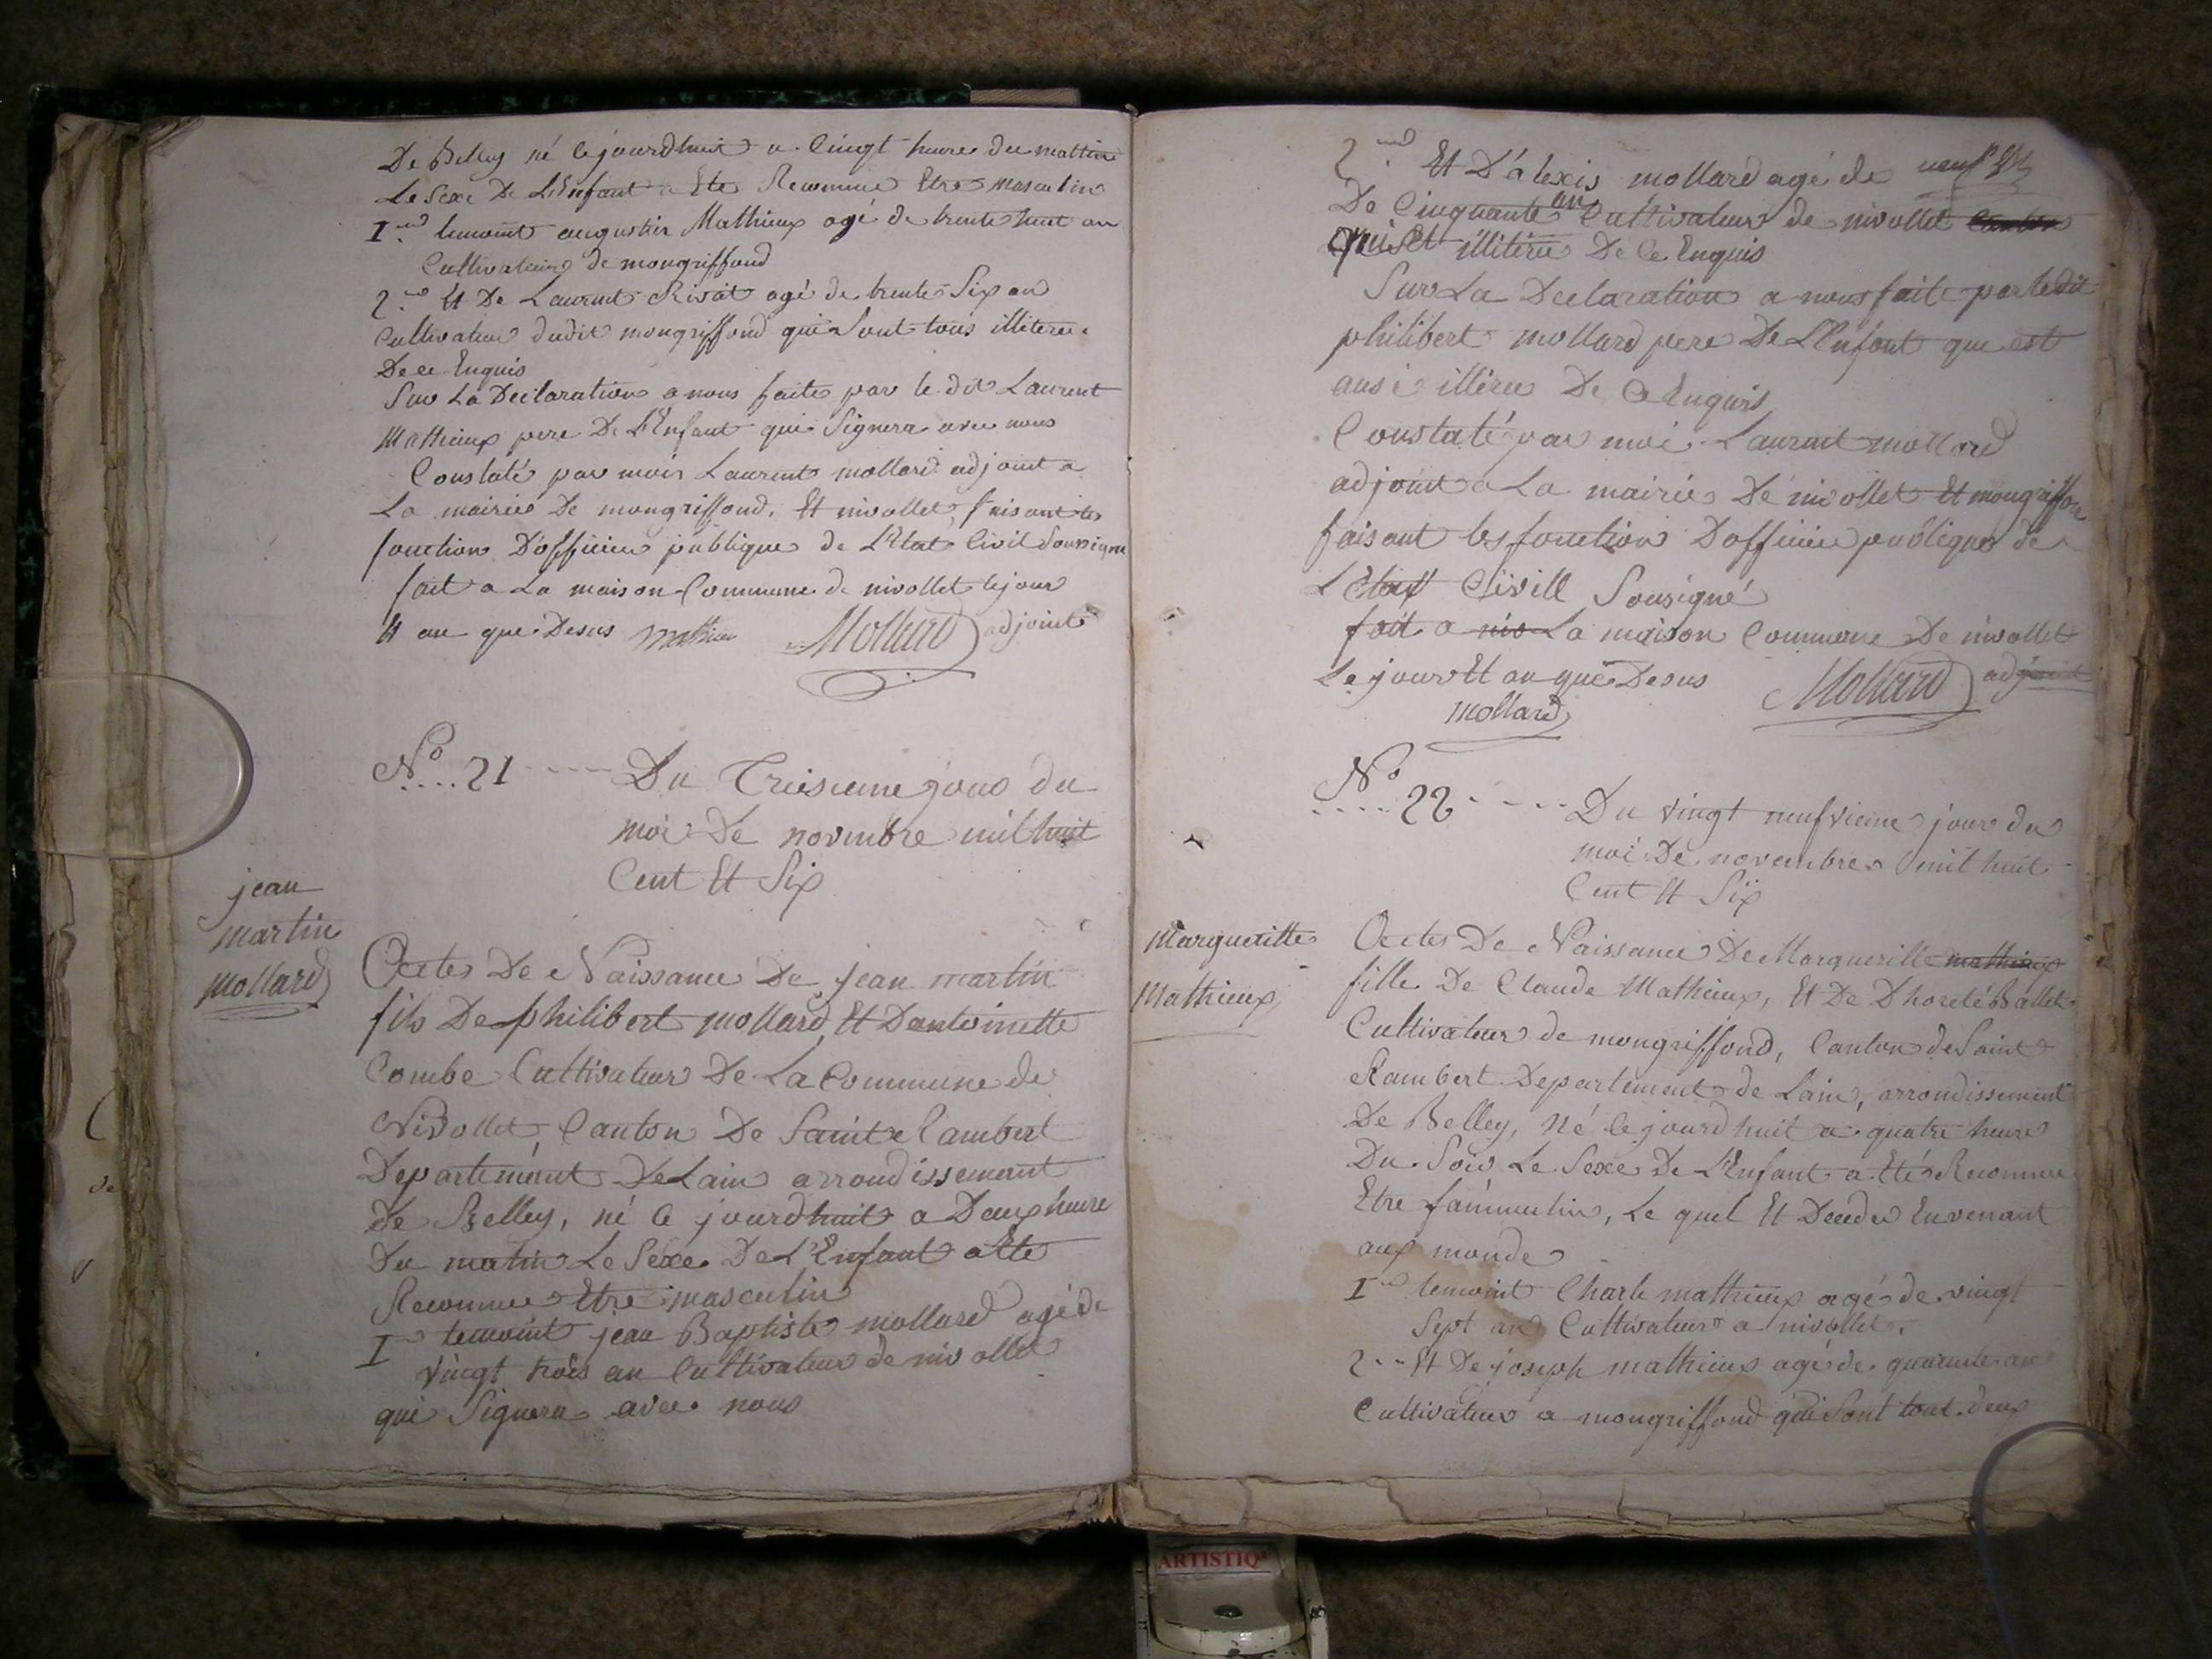 De Belley né cejourdhuit a Cingt heure du mattin
Le Sexe De L'Enfant a Ete Reconnue Etre masculin
1er temoint augustin Mathieux agé de trente huit an
Cultivateur de mongriffond
2nd Et De Laurent Rivat agé de trente Six an
Cultivateur dudit mongriffond qui Sont tous illiteree
De ce Enquis
Sur La Declaration a nous faite par le dit Laurent
Mathieux pere De L'Enfant qui Signera avec nous
Constaté par moir Laurent mollard adjoint a
La mairie De mongriffond, Et nivollet faisant les
fonction D'officier publique de L'Etat Civil Soussigne
fait a La maison Commune de nivollet le jour
Et an que Desus mathieu Mollard adjoint
No 21 Du Treisieme jour du
moi De novembre mil huit
Cent Et Six
jean
martin
mollard
Actes De Naissance De jean martin
fils De philibert mollard, Et Dantoinette
Combe Cultivateur De La Commune de
Nivollet, Canton De Saint Rambert
Departement De Lain arrondissement
De Belley, né ce jourdhuit a Deux heure
Du matin Le Sexe De L'Enfant a Ete
Reconnue Etre masculin
1er temoint jean Baptiste mollard agé de
vingt trois an Cultivateur de nivollet
qui Signera avec nous
2nd Et D'alexis mollard agé de neuf
De Cinquante an Cultivateur de nivollet
qui Et illiteree De ce Enquis
Sur La Declaration a nous faite par ledit
philibert mollard pere De L'Enfant que est
ausi illiree De ce Enquis
Constaté par moi Laurent mollard
adjoint a La mairie De nivollet Et mongriffon
faisant les fonction D'officier publique de
L'Etat Civill Sousigné
fait a niv La maison Commune De nivollet
Le jour Et an que Desus Mollard adjoint
mollard
No 22 Du vingt neufvieme jour du
moi De novembre mil huit
Cent Et Six
Margueritte
Mathieux
Actes De Naissance De Marguerille mathieux
fille De Claude Mathieux, Et De Dhoreté Ballet
Cultivateur de mongriffond, Canton de Saint
Rambert Departement de Lain, arrondissement
De Belley, né ce jourdhuit a quatre heure
Du Soir Le Sexe De L'Enfant a Eté Reconnue
Etre faimmulin, Le quel Et Decede Envenant
aux monde
1er temoint Charle mathieux agé de vingt
Sept an Cultivateur a nivollet,
2 Et De joseph mathieux agé de quarante an
Cultivateur a mongriffond qui Sont tout deux
ARTISTIQ